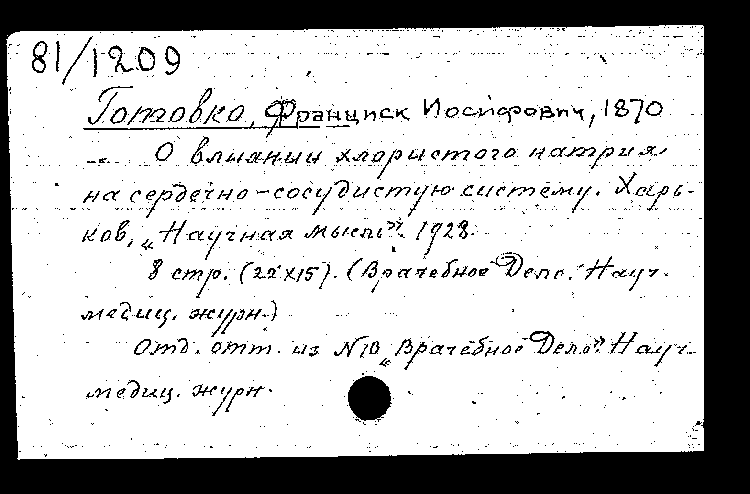 81/1209
Готовко, Франциск Иосифович, 1870
О влиянии хлористого натрия
на сердечно-сосудистую систему. Харь-
ков, „Научная мысль". 1928.
8 стр. (22x15). (Врачебное Дело. Науч.
медиц. журн.)
Отд. отт. из №10 „Врачебное Дело". Науч.
медиц. журн.